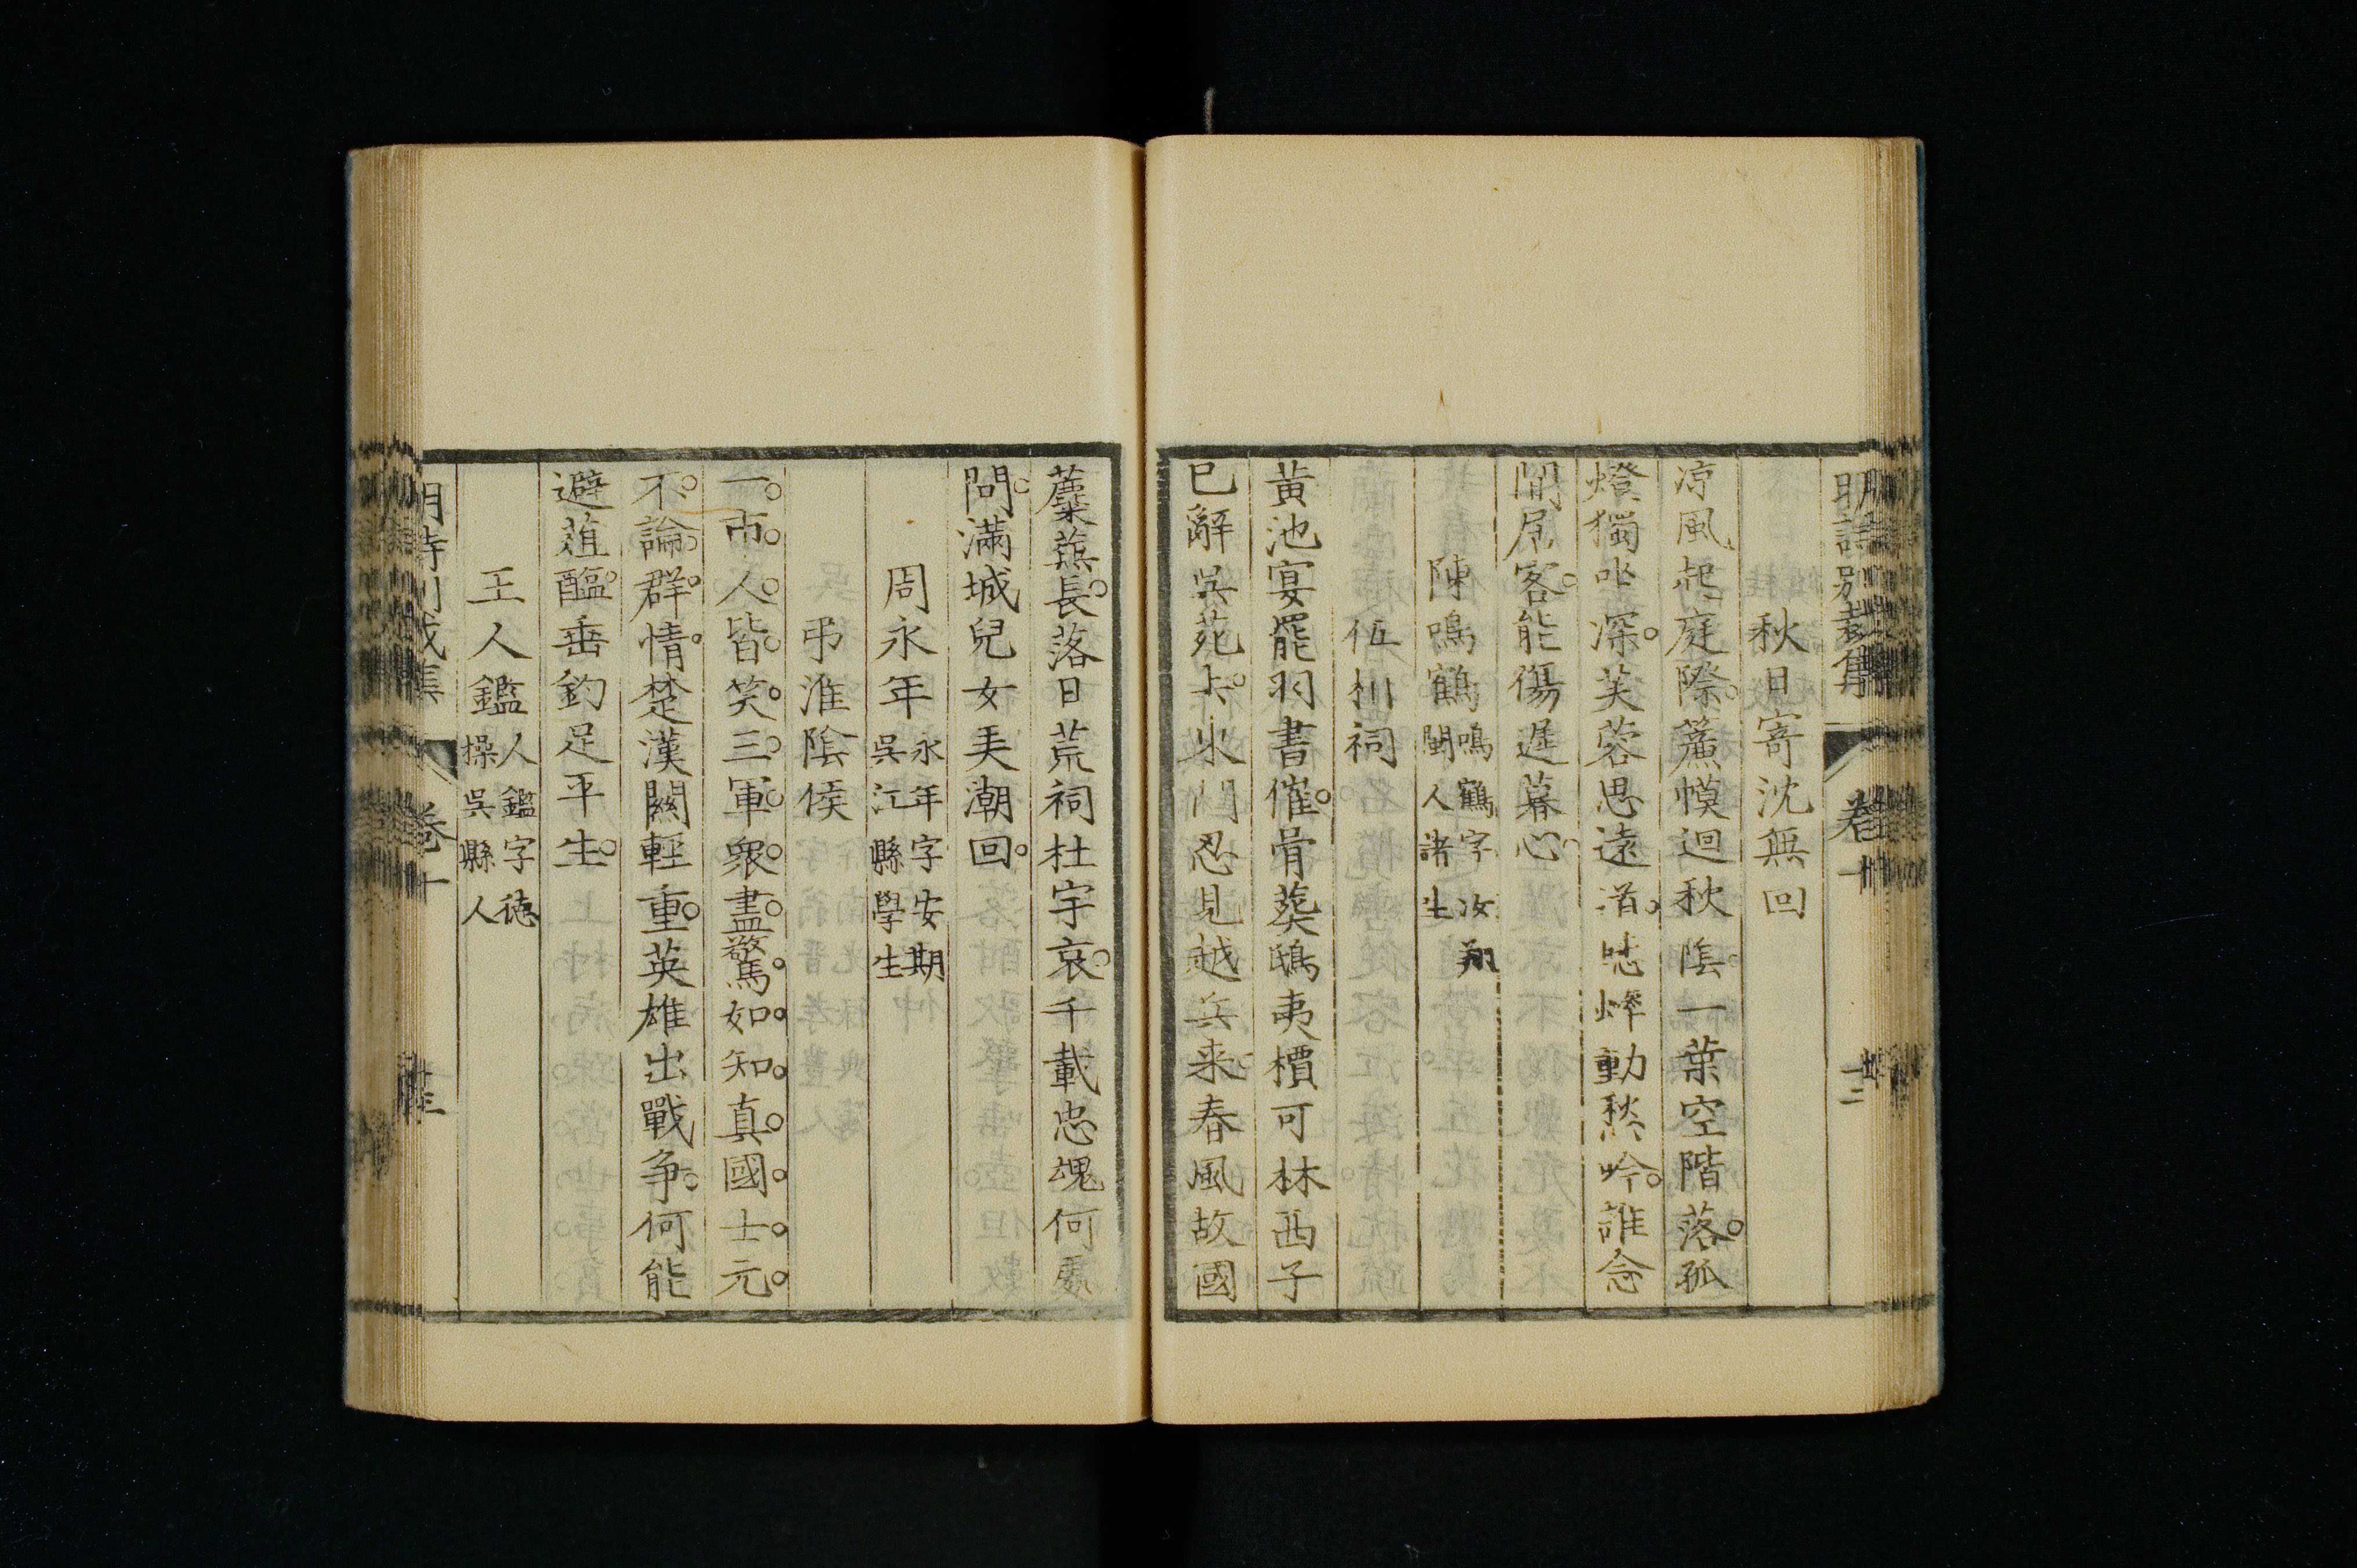 明詩別裁集 卷十 十二
秋日寄沈無回
涼風起庭際。簾幙迴秋陰。一葉空階落。孤
燈獨坐深。芙蓉思遠道。蟋蟀動愁吟。誰念
閒居客。能傷遲暮心。
陳鳴鶴 鳴鶴字汝翔閩人諸生
伍相祠
黃池宴罷羽書催。骨葬鴟夷檟可材。西子
已辭吳苑去。水門忍見越兵来。春風故國
蘼蕪長。落日荒祠杜宇哀。千載忠魂何處
問。滿城兒女弄潮回。
周永年 永年字安期吳江縣學生
弔淮陰侯
一市人皆笑。三軍眾盡驚。如知真國士。元
不論群情。楚漢關輕重。英雄出戰爭。何能
避葅醢。垂釣足平生。
王人鑑 人鑑字德操吳縣人
明詩別裁集 卷十